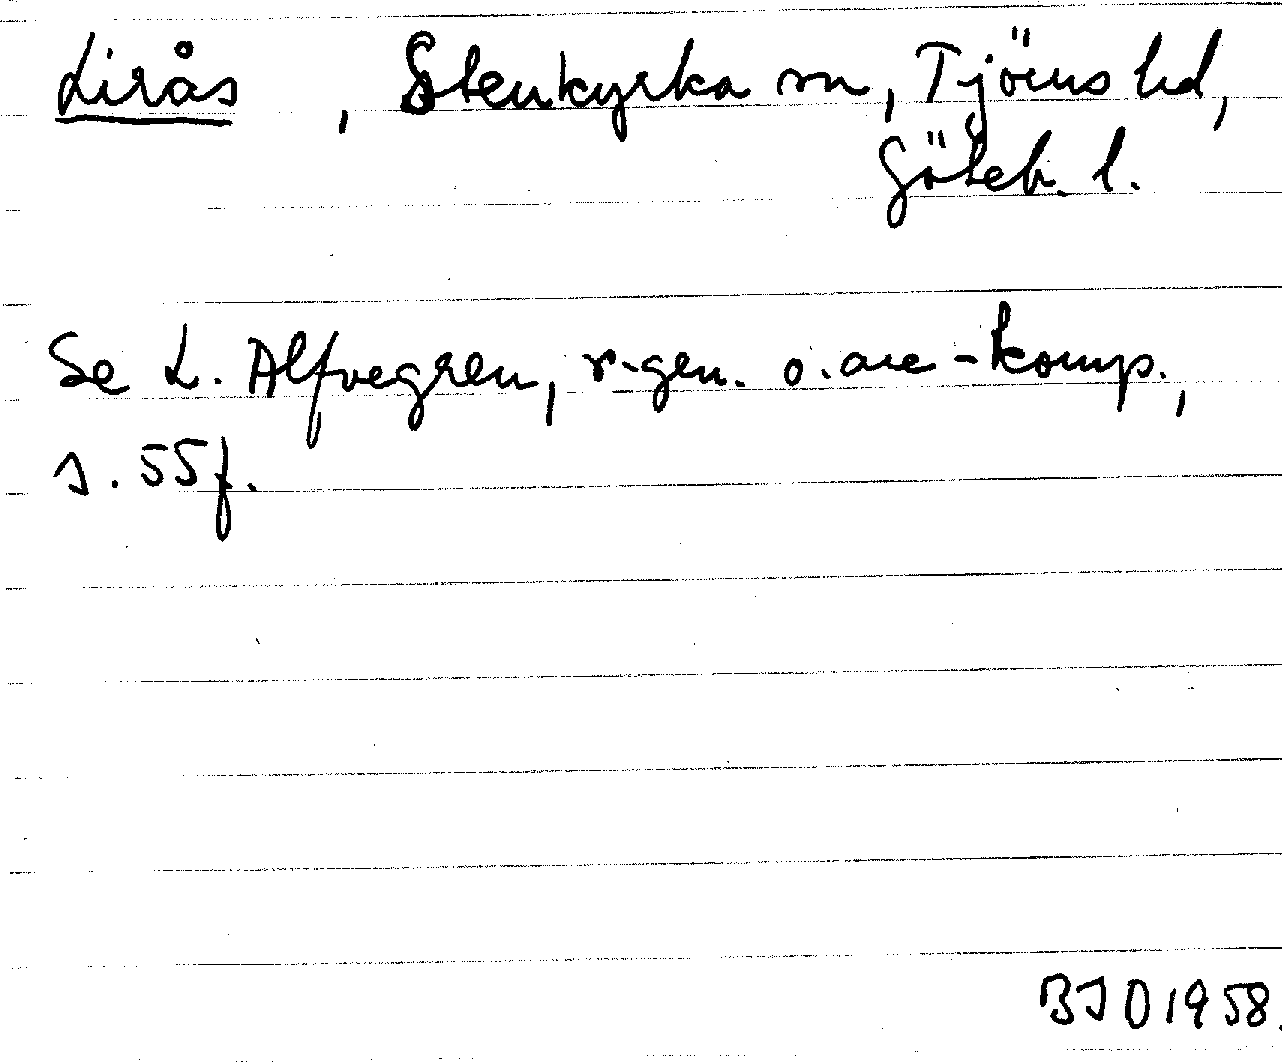 Lirås, Stenkyrka sn, Tjörns hd,
Göteb. l.
Se L. Alfvegren, r-gen. o. are-komp.,
s. 55f.
BJO 1958.